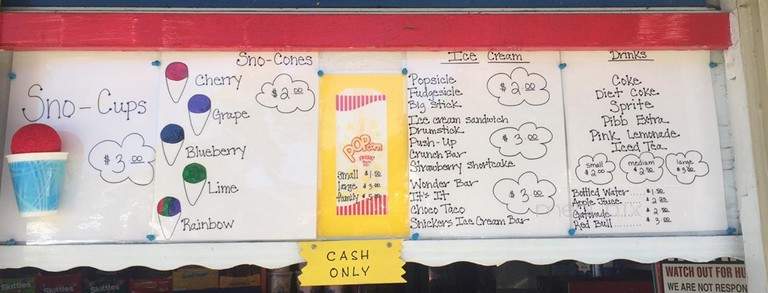 Sno-Cups
$3.00
Sno-Cones
Cherry
$2.00
Grape
Blueberry
Lime
Rainbow
POPcorn
small $1.50
large $3.00
family
Ice Cream
Popsicle
Fudgesicle
Big Stick
$2.00
Ice cream sandwich
Drumstick
Push-Up
Crunch Bar
Strawberry shortcake
$3.00
Wonder Bar
It's It
Choco Taco
Snickers Ice Cream Bar
$3.00
Drinks
Coke
Diet Coke
Sprite
Pibb Extra
Pink Lemonade
Iced Tea
small $2.00
medium $2.50
large $3.00
Bottled Water $1.50
Apple Juice $2.00
Gatorade
Red Bull
CASH
ONLY
Skittles
Skittles
Skittles
WATCH OUT FOR HU
WE ARE NOT RESPON